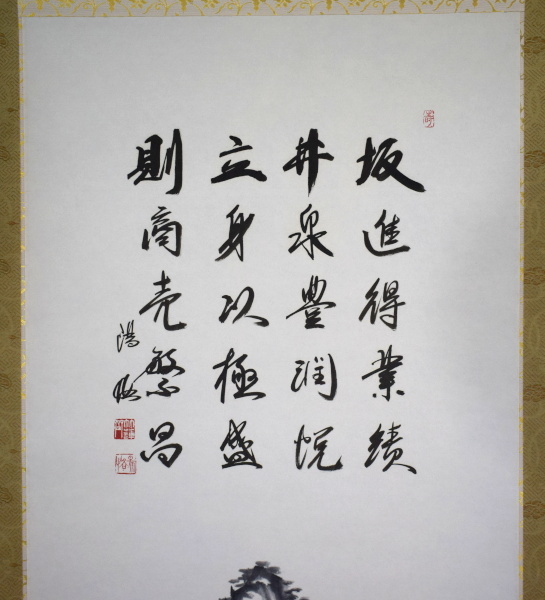 坂進得業績
井泉豊潤悦
立身以極盛
則商売繁昌
陽